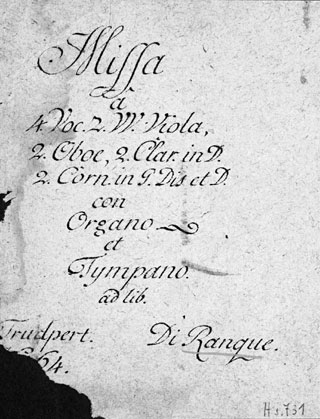 Missa
à
4. Voc. 2. VV. Viola,
2. Oboe, 2. Clar. in D.
2. Corn. in G. Dis et D.
con
Organo
et
Tympano.
ad lib.
Trudpert. Di Ranque.
64.
Hs. 731